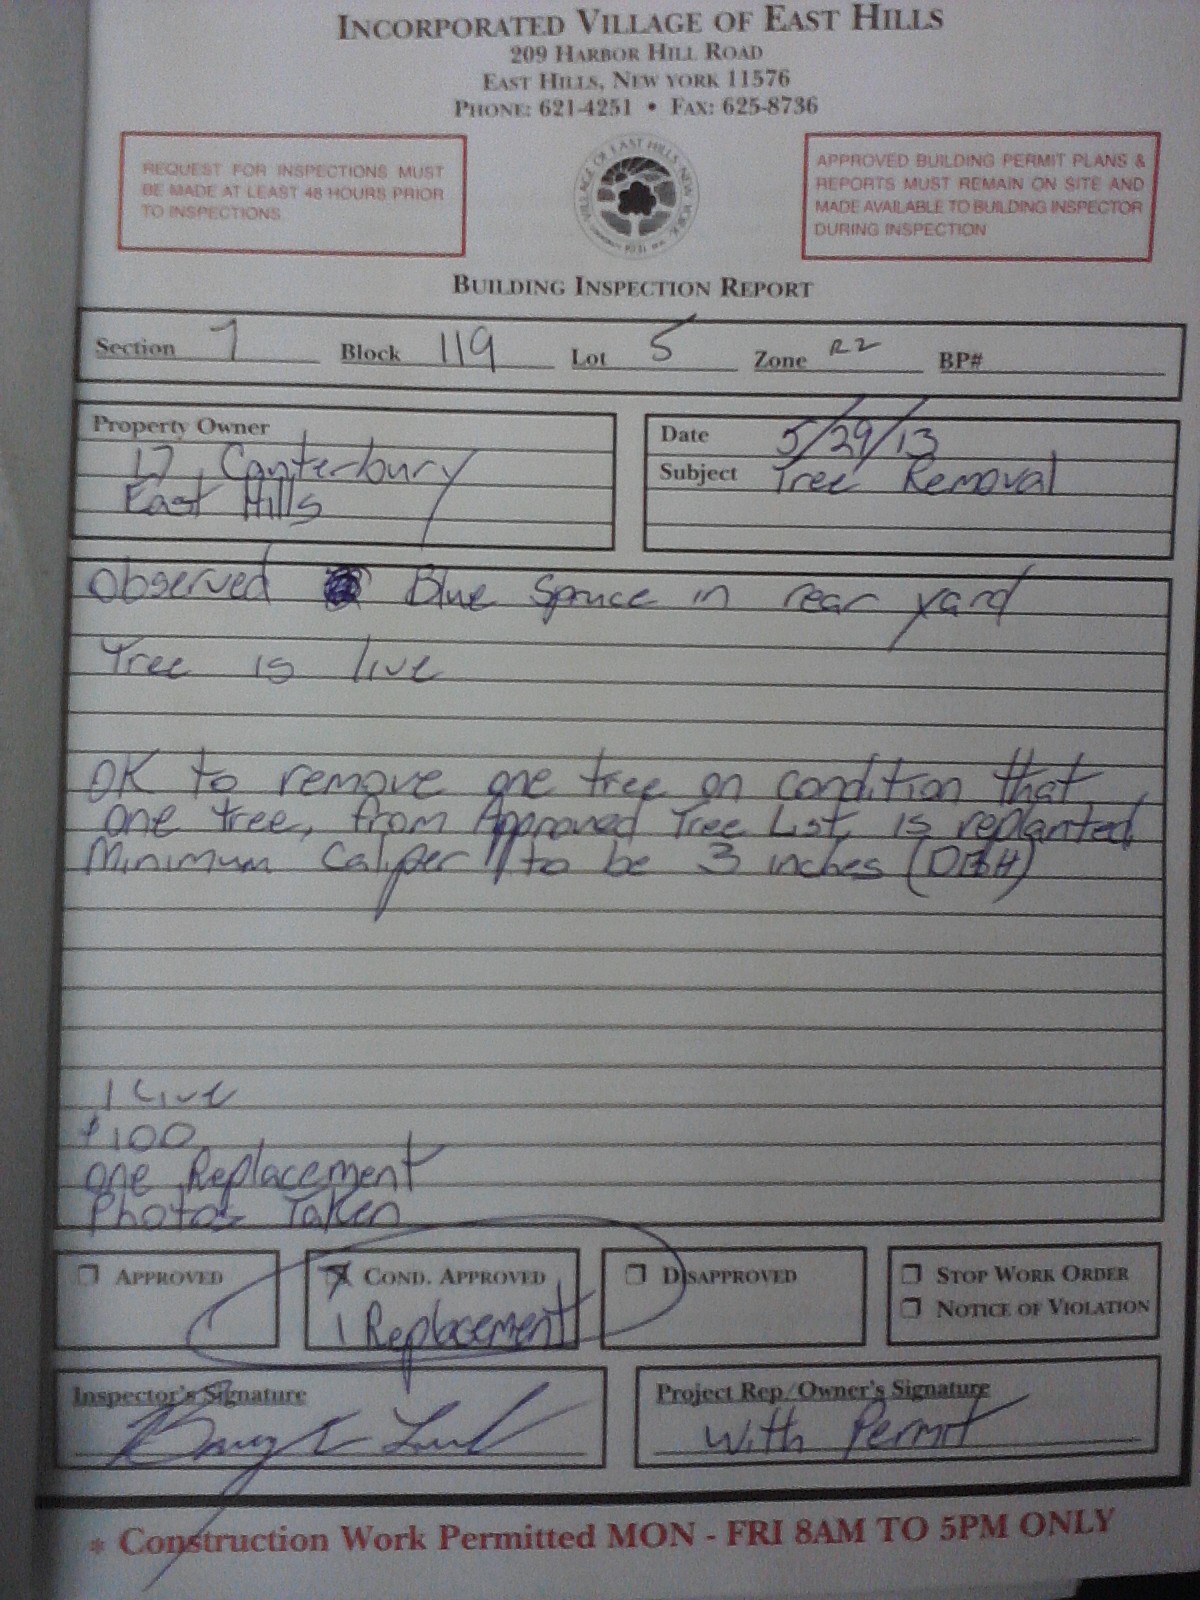 INCORPORATED VILLAGE OF EAST HILLS
209 HARBOR HILL ROAD
EAST HILLS, NEW YORK 11576
PHONE: 621-4251 • FAX: 625-8736
REQUEST FOR INSPECTIONS MUST
BE MADE AT LEAST 48 HOURS PRIOR
TO INSPECTIONS
VILLAGE OF EAST HILLS NEW YORK
1931
APPROVED BUILDING PERMIT PLANS &
REPORTS MUST REMAIN ON SITE AND
MADE AVAILABLE TO BUILDING INSPECTOR
DURING INSPECTION
BUILDING INSPECTION REPORT
Section 7 Block 119 Lot 5 Zone R2 BP#
Property Owner
17 Canterbury
East Hills
Date 5/29/13
Subject Tree Removal
Observed Blue Spruce in rear yard
Tree is live
OK to remove one tree on condition that
one tree, from Approved Tree List, is replanted.
Minimum Calyper to be 3 inches (DBH)
1 Live
$100
one Replacement
Photos Taken
APPROVED
COND. APPROVED
1 Replacement
DISAPPROVED
STOP WORK ORDER
NOTICE OF VIOLATION
Inspector's Signature
Project Rep./Owner's Signature
With Permit
* Construction Work Permitted MON - FRI 8AM TO 5PM ONLY